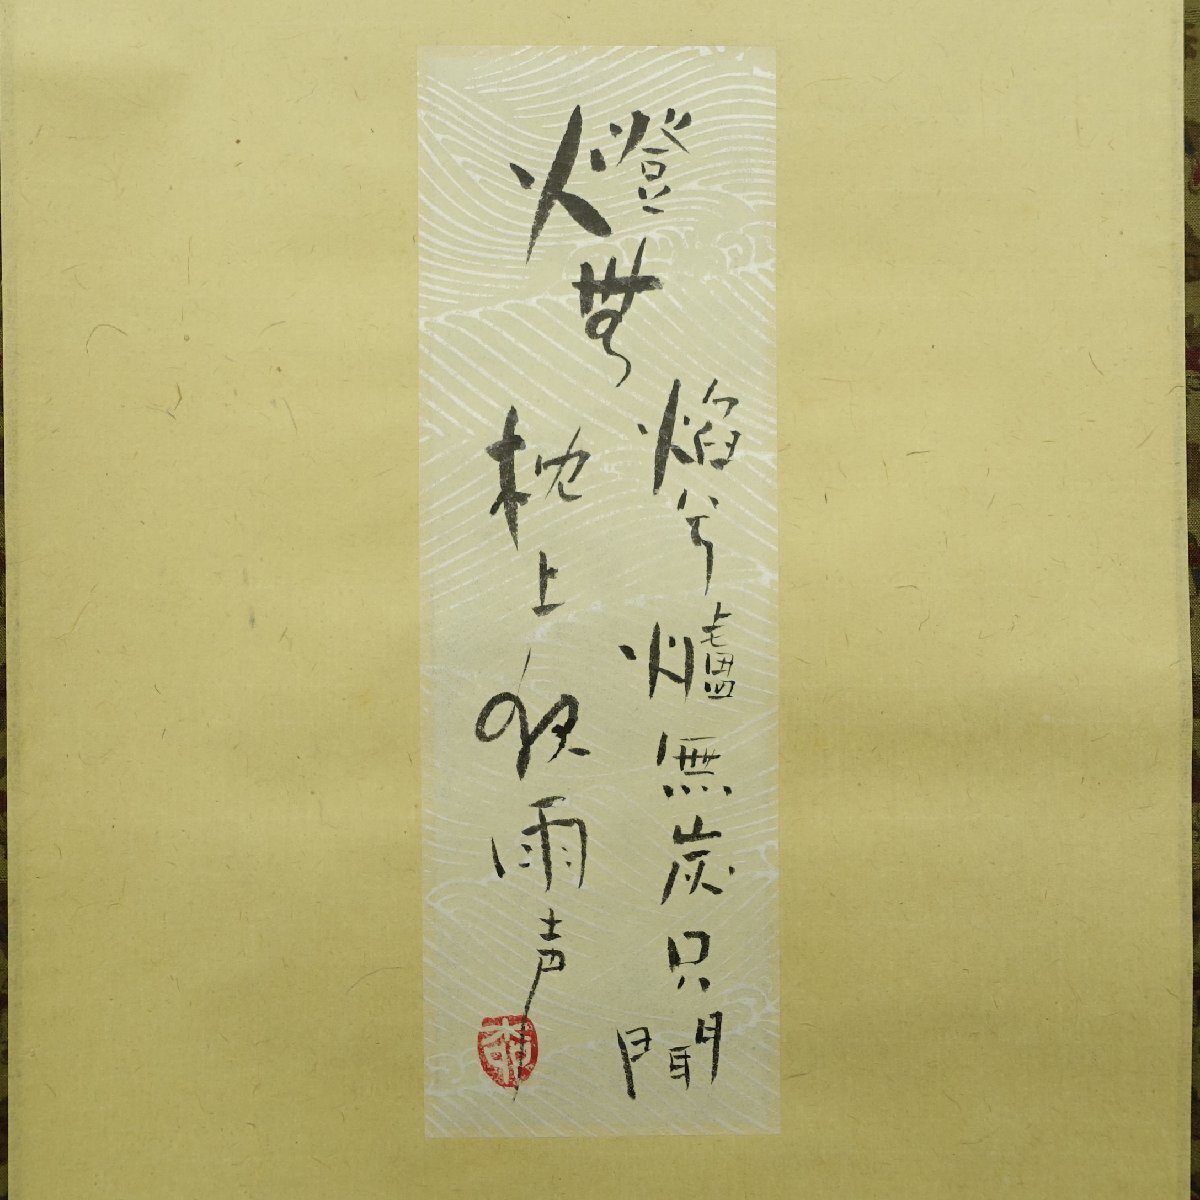 燈無焔兮爐無炭只聞
枕上夜雨声